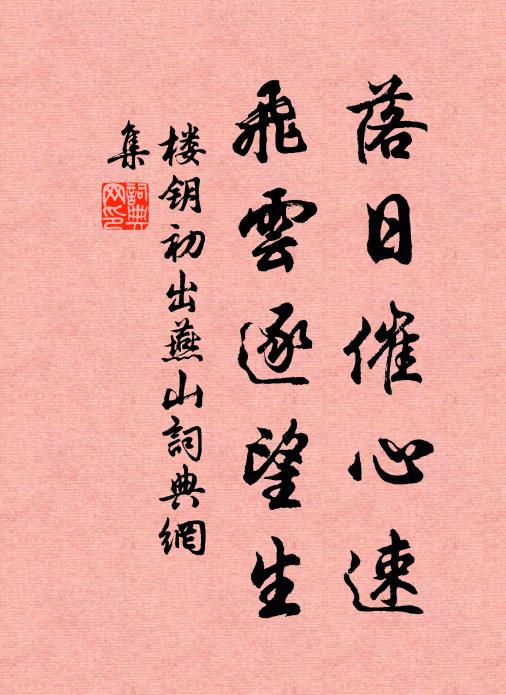 落日催心速
飛雲逐望生
楼钥初出燕山詞典網
集
詞典
网印